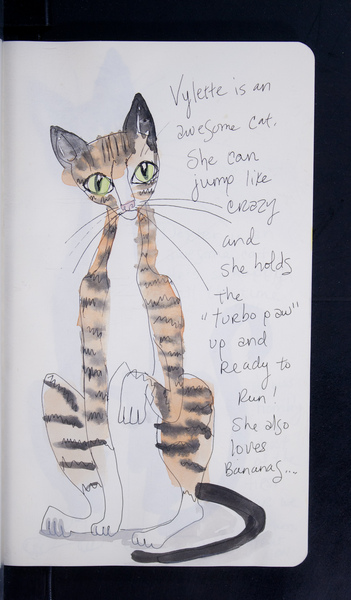 Vylette is an
awesome cat.
She can
jump like
crazy
and
she holds
the
"turbo paw"
up and
Ready to
Run!
She also
loves
Bananas...